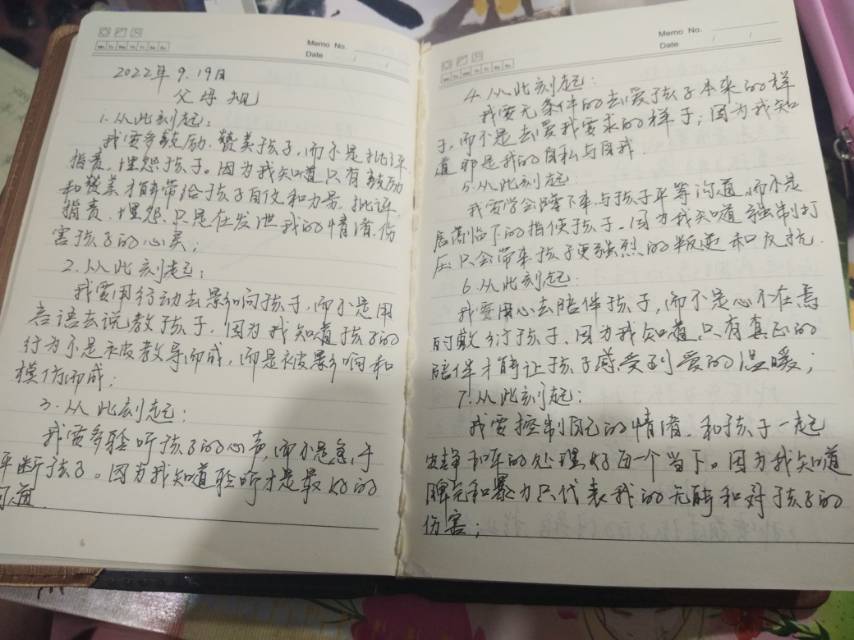 Memo No.
Date / /
2022年9.19日
父母规
1.从此刻起:
我要多鼓励、赞美孩子,而不是批评
指责、埋怨孩子。因为我知道只有鼓励
和赞美才能带给孩子自信和力量,批评
指责、埋怨只是在发泄我的情绪,伤
害孩子的心灵;
2.从此刻起:
我要用行动去影响孩子,而不是用
言语去说教孩子,因为我知道孩子的
行为不是被教导而成,而是被影响和
模仿而成;
3.从此刻起:
我要多聆听孩子的心声,而不是急于
评断孩子。因为我知道聆听才是最好的
沟通
Memo No.
Date / /
4.从此刻起:
我要无条件的去爱孩子本来的样
子,而不是去爱我要求的样子;因为我知
道那是我的自私与自我
5.从此刻起:
我要学会蹲下来与孩子平等沟通,而不是
居高临下的指使孩子。因为我知道强制打
压只会带来孩子更强烈的叛逆和反抗.
6.从此刻起:
我要用心去陪伴孩子,而不是心不在焉
的敷衍孩子,因为我知道,只有真正的
陪伴才能让孩子感受到爱的温暖;
7.从此刻起:
我要控制自己的情绪,和孩子一起
安静和平的处理好每一个当下。因为我知道
脾气和暴力只代表我的无能和对孩子的
伤害;